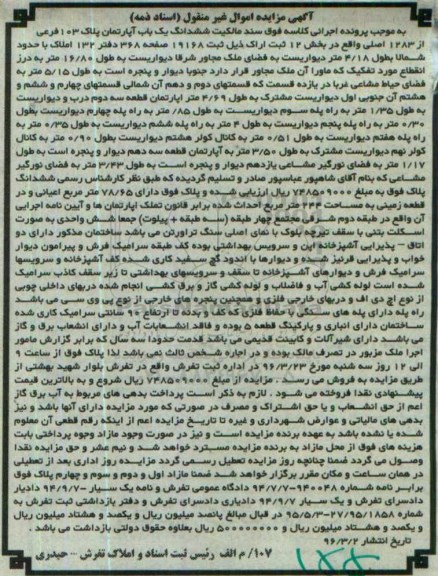 آگهی مزایده اموال غیر منقول (اسناد ذمه)
به موجب پرونده اجرائی کلاسه فوق سند مالکیت ششدانگ یک باب آپارتمان پلاک ۱۰۳ فرعی
از ۱۲۸۳ اصلی واقع در بخش ۱۲ ثبت اراک ذیل ثبت ۱۹۱۶۸ صفحه ۳۶۸ دفتر ۱۳۲ املاک با حدود
شمالا بطول ۴/۱۸ متر دیواریست به فضای ملک مجاور شرقا دیواریست بطول ۱۶/۸۸ متر به درز
انقطاع مورد تفکیک که ماورا آن ملک مجاور قرار دارد جنوبا دیوار و پنجره است به طول ۵/۱۵ متر به
فضای حیاط مشاعی غربا در یازده قسمت که قسمتهای دوم و دهم آن شمالی قسمتهای چهارم و ششم و
هشتم آن جنوبی اول دیواریست مشترک به طول ۴/۶۹ متر آپارتمان قطعه سه دوم درب و دیواریست
به طول ۱/۳۵ متر به راه پله سوم دیواریست به طول ۰/۸۵ متر به راه پله چهارم دیواریست بطول
۰/۳۰ متر به راه پله پنجم دیواریست به طول ۴ متر به راه پله ششم دیواریست به طول ۰/۳۵ متر به
راه پله هفتم دیواریست به طول ۰/۵۱ متر به کانال کولر هشتم دیواریست بطول ۰/۹۰ متر به کانال
کولر نهم دیواریست مشترک به طول ۳/۵۰ متر به آپارتمان قطعه سه دهم دیوار و پنجره است به طول
۱/۱۷ متر به فضای نورگیر مشاعی یازدهم دیوار و پنجره است به طول ۳/۴۳ متر به فضای نورگیر
مشاعی که بنام آقای شاهپور عباسپور صادر و تسلیم گردیده که طبق نظر کارشناس رسمی ششدانگ
پلاک فوق به مبلغ ۷۴۸۵۰۹۰۰۰ ریال ارزیابی شده و پلاک فوق دارای ۷۸/۶۵ متر مربع اعیانی و در
قطعه زمینی به مساحت ۲۴۴ متر مربع احداث شده برابر قانون تملک آپارتمان ها و آیین نامه اجرایی
آن واقع در طبقه دوم شرقی مجتمع چهار طبقه (سه طبقه + پیلوت) جمعا شش واحدی به صورت
اسکلت بتنی با سقف تیرچه بلوک با نمای اصلی سنگ تراورتن می باشد ساختمان مذکور دارای دو
اتاق – پذیرایی آشپزخانه اپن و سرویس بهداشتی بوده کف طبقه سرامیک فرش و پیرامون دیوار
خواب و پذیرایی قرنیز شده و دیوارها با اندود گچ سفید کاری شده کف آشپزخانه و سرویسها
سرامیک فرش و دیوارهای آشپزخانه تا سقف و سرویسهای بهداشتی تا زیر سقف کاذب سرامیک
شده است لوله کشی آب و فاضلاب و لوله کشی گاز و برق کشی انجام شده دربهای داخلی چوبی
از نوع اچ دی اف و دربهای خارجی فلزی و همچنین پنجره های خارجی از نوع یو پی وی سی می باشد
راه پله دارای پله های سنگی با حفاظ فلزی که کف و بدنه تا ارتفاع ۹۰ سانتی سرامیک کاری شده
ساختمان دارای انباری و پارکینگ قطعه ۵ بوده و فاقد انشعابات آب و دارای انشعاب برق و گاز
می باشد دارای شیرآلات و کابینت قدیمی می باشد قدمت حدودا سه سال که برابر گزارش مامور
اجرا ملک مزبور در تصرف مالک بوده و در اجاره شخص ثالث نمی باشد لذا پلاک فوق از ساعت ۹
الی ۱۲ روز سه شنبه مورخ ۹۶/۳/۲۳ در اداره ثبت تفرش واقع در تفرش بلوار شهید بهشتی از
طریق مزایده به فروش می رسد. مزایده از مبلغ ۷۴۸۵۰۹۰۰۰ ریال شروع و به بالاترین قیمت
پیشنهادی نقدا فروخته می شود. لازم به ذکر است پرداخت بدهی های مربوط به آب برق گاز
اعم از حق انشعاب و یا حق اشتراک و مصرف در صورتی که مورد مزایده دارای آنها باشد و نیز
بدهی های مالیاتی و عوارض شهرداری و غیره تا تاریخ مزایده اعم از اینکه رقم قطعی آن معلوم
شده یا نشده باشد به عهده برنده مزایده است و نیز در صورت وجود مازاد وجوه پرداختی بابت
هزینه های فوق از محل مازاد به برنده مزایده مسترد خواهد شد و نیم عشر و حق مزایده نقدا
وصول می گردد ضمنا چنانچه روز مزایده تعطیل رسمی گردد مزایده روز اداری بعد از تعطیلی
در همان ساعت و مکان مقرر برگزار خواهد شد ضمنا مازاد اول و دوم و سوم و چهارم پلاک فوق
برابر نامه شماره ۹۴۷/۷-۹۴۰۰۴۸ دادگاه عمومی تفرش و نامه یک سیار – ۹۴/۹/۷ دادیار
دادسرای تفرش و یک سیار ۹۴/۹/۷ دادیاری دادسرای تفرش و دفتر بازداشتی ثبت تفرش به
شماره ۹۵/۵/۳-۲۷/۹۵/۱۸۵۸ در قبال مبالغ پانصد میلیون ریال و یکصد و هشتاد میلیون ریال
و یکصد و هشتاد میلیون ریال و ۵۰۰۰۰۰۰۰۰ ریال بعلاوه حقوق دولتی بازداشت می باشد.
تاریخ انتشار ۹۶/۳/۲
۱۰۷/ م الف رئیس ثبت اسناد و املاک تفرش – حیدری